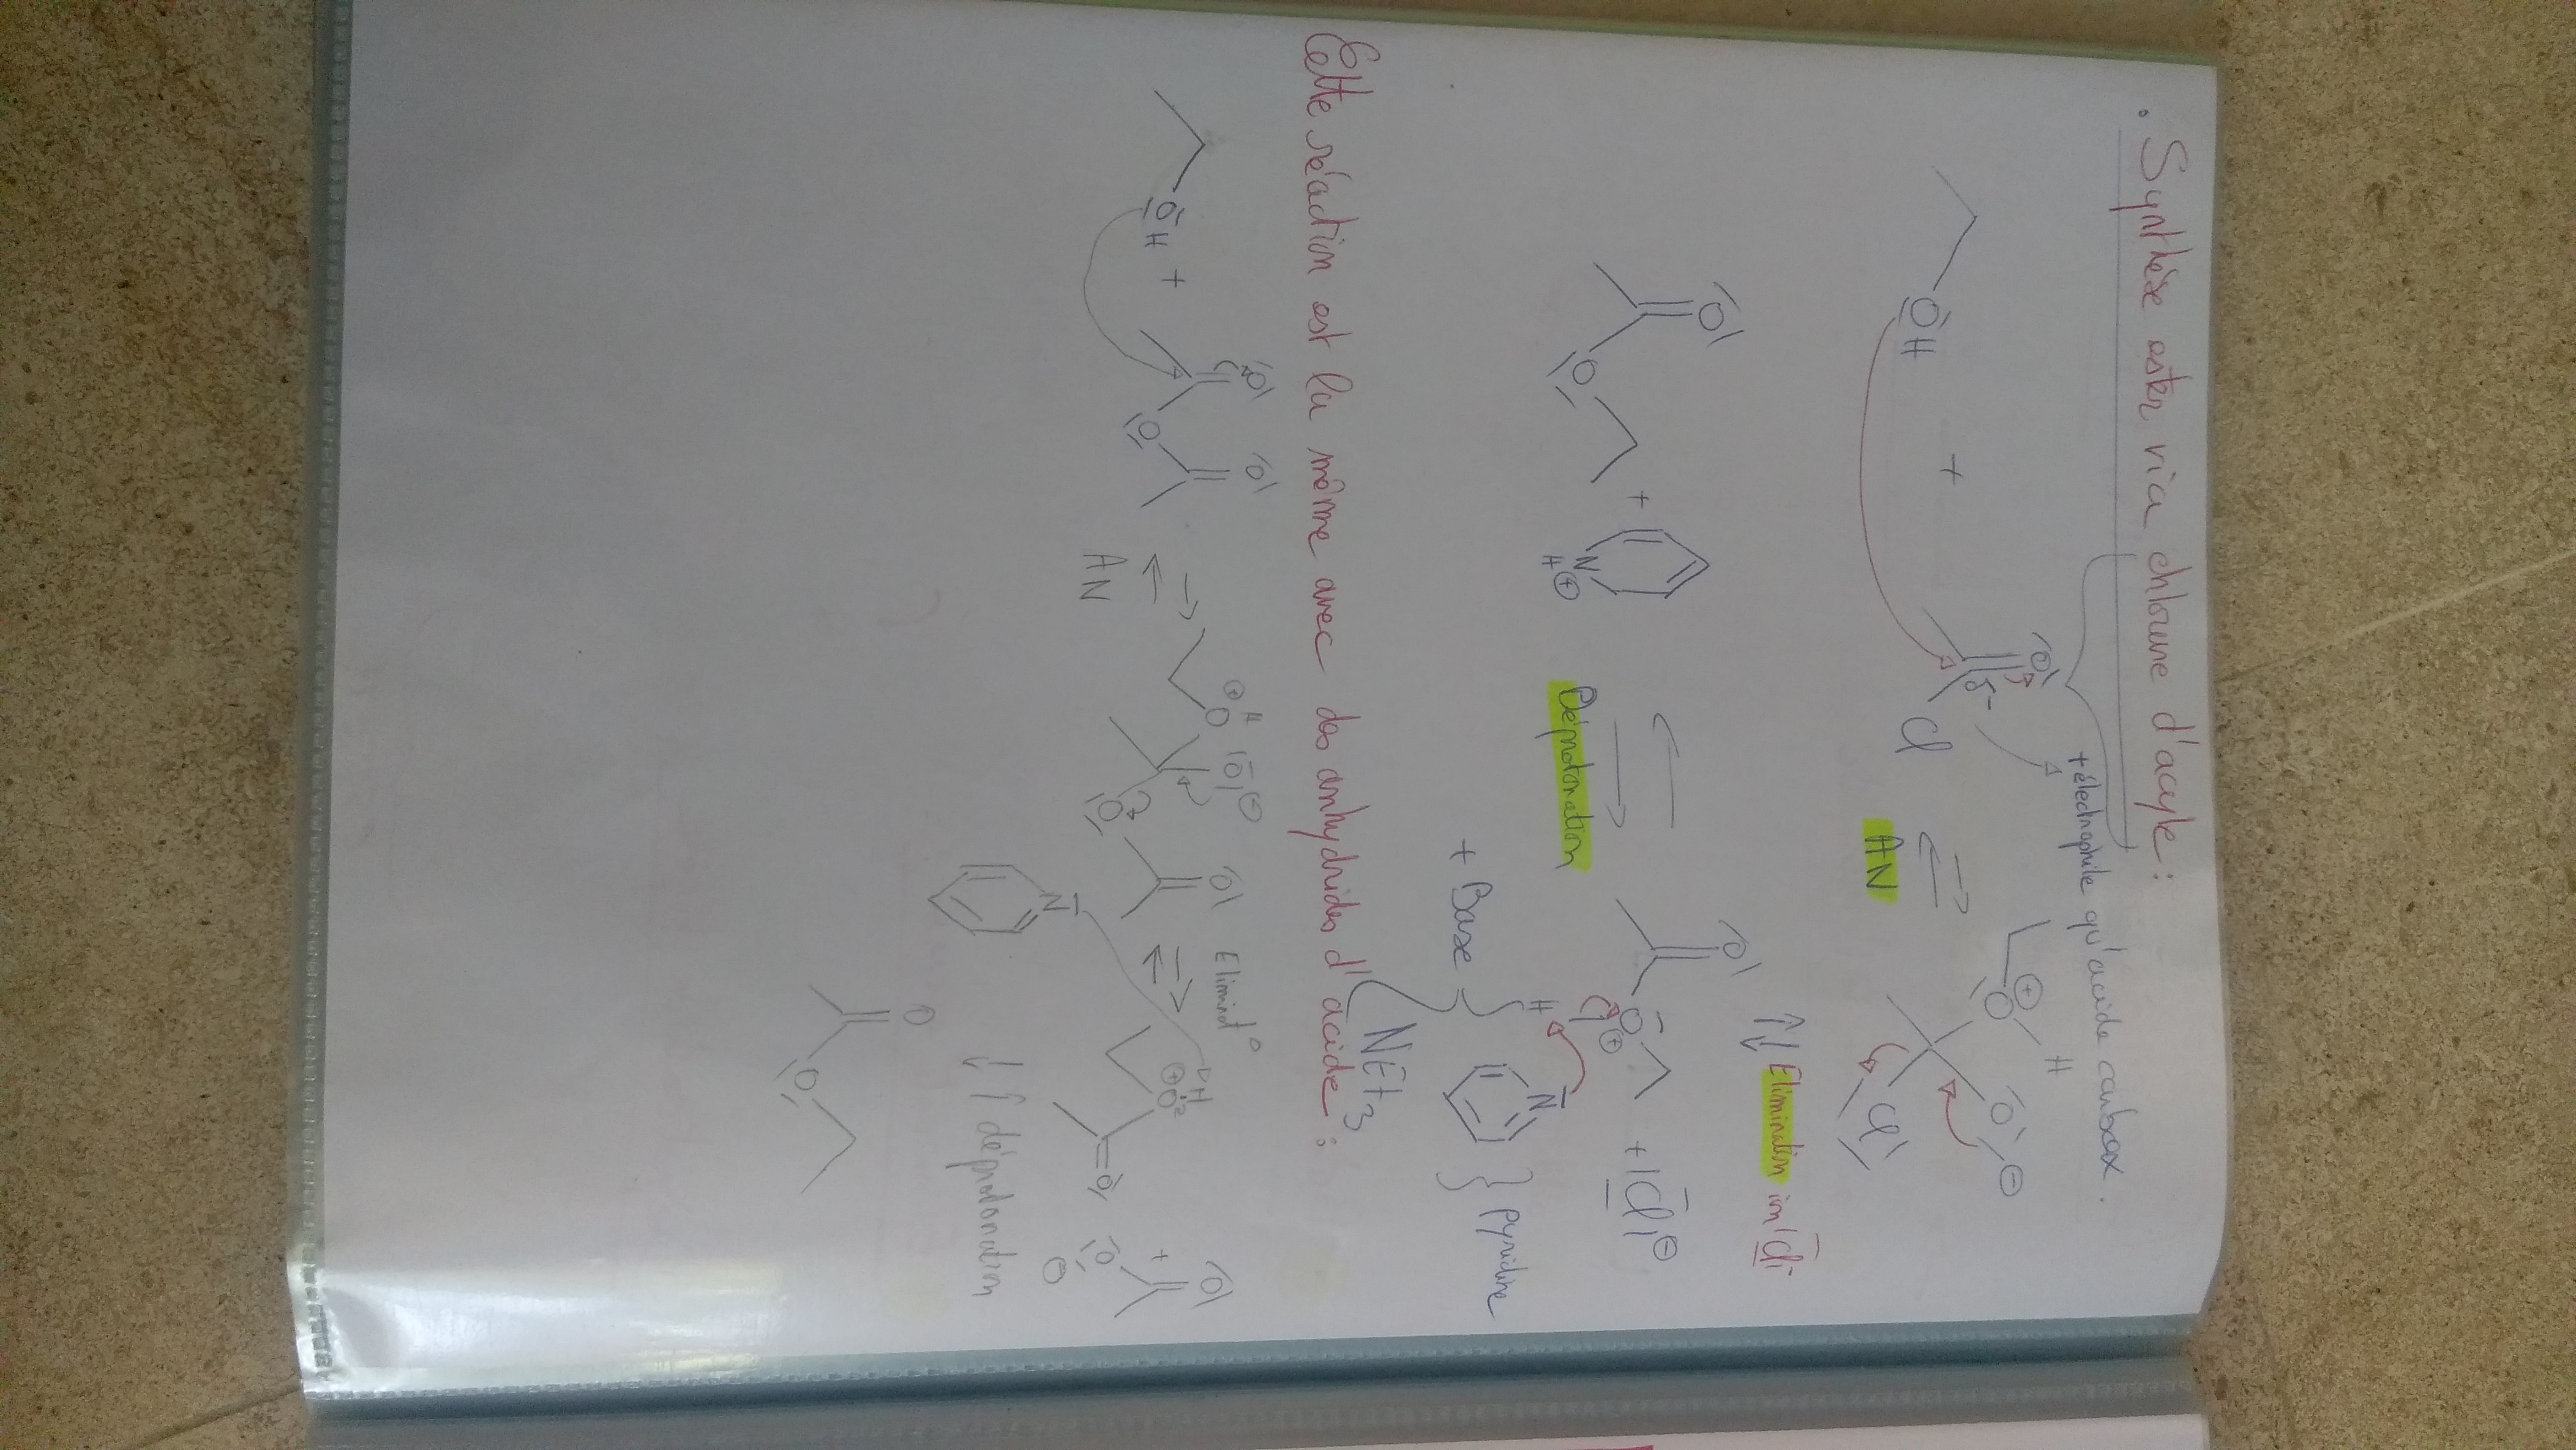 . Synthèse ester via chlorure d'acyle :
+ électrophile qu'acide carbox.
OH + O δ- Cl
AN
O ⊕ H O ⊖ Cl
↑↓ Elimination ion Cl
O O + N H ⊕
Déprotonation
O H O ⊕ + Cl ⊖
+ Base { N } pyridine
NEt3
Cette réaction est la même avec des anhydrides d'acide :
OH + O O O
AN
⊕ H O O ⊖ O O
Eliminat°
H ⊕ O O + O O ⊖
N
↓↑ déprotonation
O O